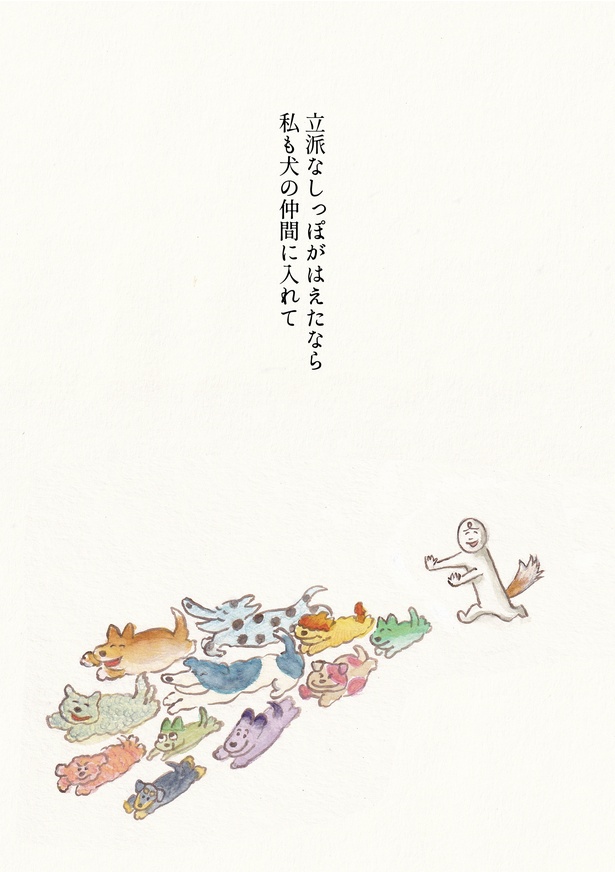 立派なしっぽがはえたなら
私も犬の仲間に入れて